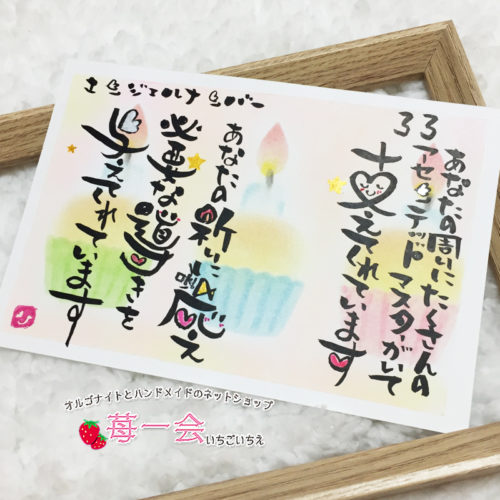 エンジェルナンバー
33
あなたの周りにたくさんの
アセンデッドマスターがいて
支えてくれています
あなたの祈りに応え
必要な導きを
与えてくれています
オルゴナイトとハンドメイドのネットショップ
苺一会いちごいちえ